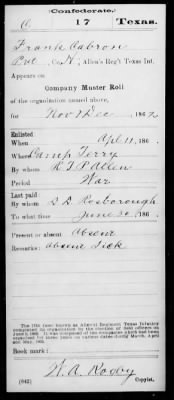 Confederate.
C 17 Texas.
Frank Cabron
Pvt, Co. K, Allen's Reg't Texas Inf.
Appears on
Company Muster Roll
of the organization named above,
for Nov & Dec, 1862.
Enlisted
When Apl 11, 186 .
Where Camp Terry
By whom R T P Allen
Period War
Last paid:
By whom S S Rosborough
To what time June 30, 186 .
Present or absent Absent
Remarks: absent sick
The 17th (also known as Allen's) Regiment Texas Infantry
Book mark:
W. A. Rogby
(642) Copyist.